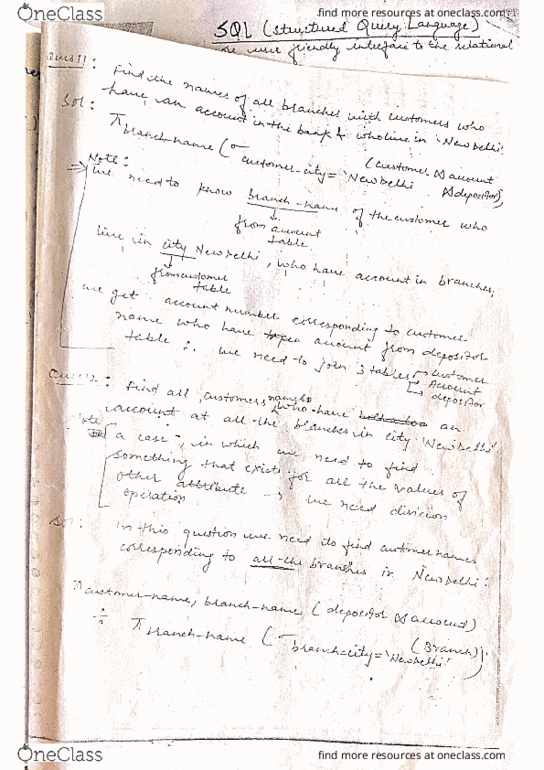 OneClass
find more resources at oneclass.com
SQL (Structured Query Language)
user friendly interface to the relational
Ques 11: Find the names of all branches with customers who
have an account in the bank & who live in 'New Delhi'.
Sol:
π branch-name (σ customer-city = 'New Delhi' (customer ⋈ account
⋈ depositor))
Note:
⇒ we need to know branch-name of the customer who
from account
table
live in city New Delhi, who have account in branches,
from customer
table
we get account number corresponding to customer
name who have account from depositor
table ∴ we need to join 3 tables → customer
→ Account
→ depositor
Ques 12: Find all customers names who have an
account at all the branches in city 'New Delhi'
Note a case, in which we need to find
something that exists for all the values of
other attribute → we need division
operation
Sol: In this question we need to find customer names
corresponding to all the branches in New Delhi.
π customer-name, branch-name (depositor ⋈ account)
÷ π branch-name (σ branch-city = 'New Delhi' (Branch)).
OneClass
find more resources at oneclass.com